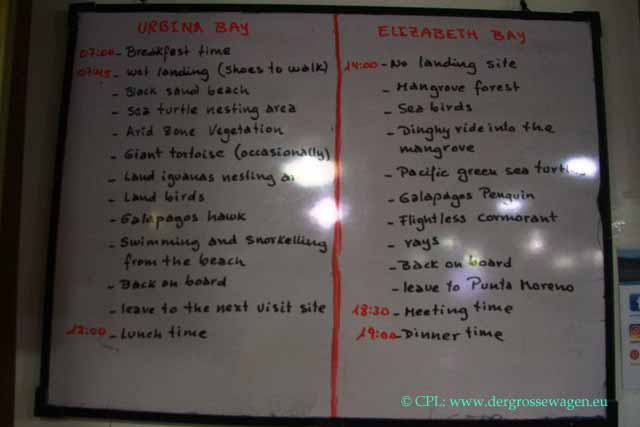 URBINA BAY
07:00 - Breakfest time
07:45 - wet landing (shoes to walk)
- Black sand beach
- Sea turtle nesting area
- Arid zone Vegetation
- Giant tortoise (occasionally)
- Land iguanas nesting
- Land birds
- Galapagos hawk
- Swimming and snorkelling
from the beach
- Back on board
- leave to the next visit site
12:00 - Lunch time
ELIZABETH BAY
14:00 - No landing site
- Mangrove forest
- Sea birds
- Dinghy ride into the
mangrove
- Pacific green sea turtles
- Galapagos Penguin
- Flightless cormorant
- rays
- Back on board
- leave to Punta Moreno
18:30 - Meeting time
19:00 - Dinner time
© CPL: www.dergrossewagen.eu